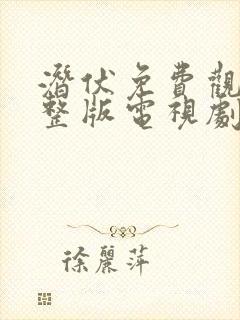 潛伏免費觀
整版電視劇
徐麗萍